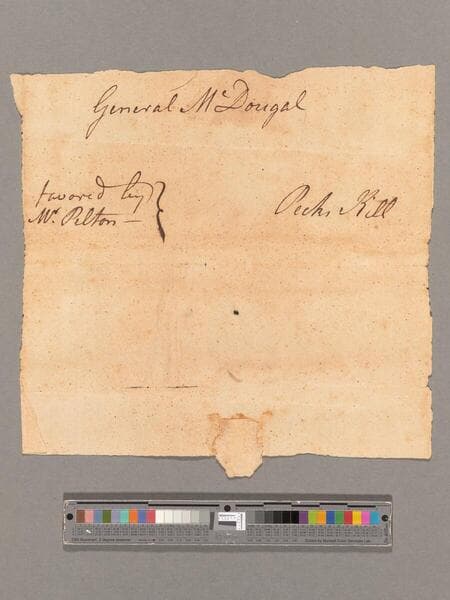 General McDougal
favored by
Mr Pelton —
Peeks Kill